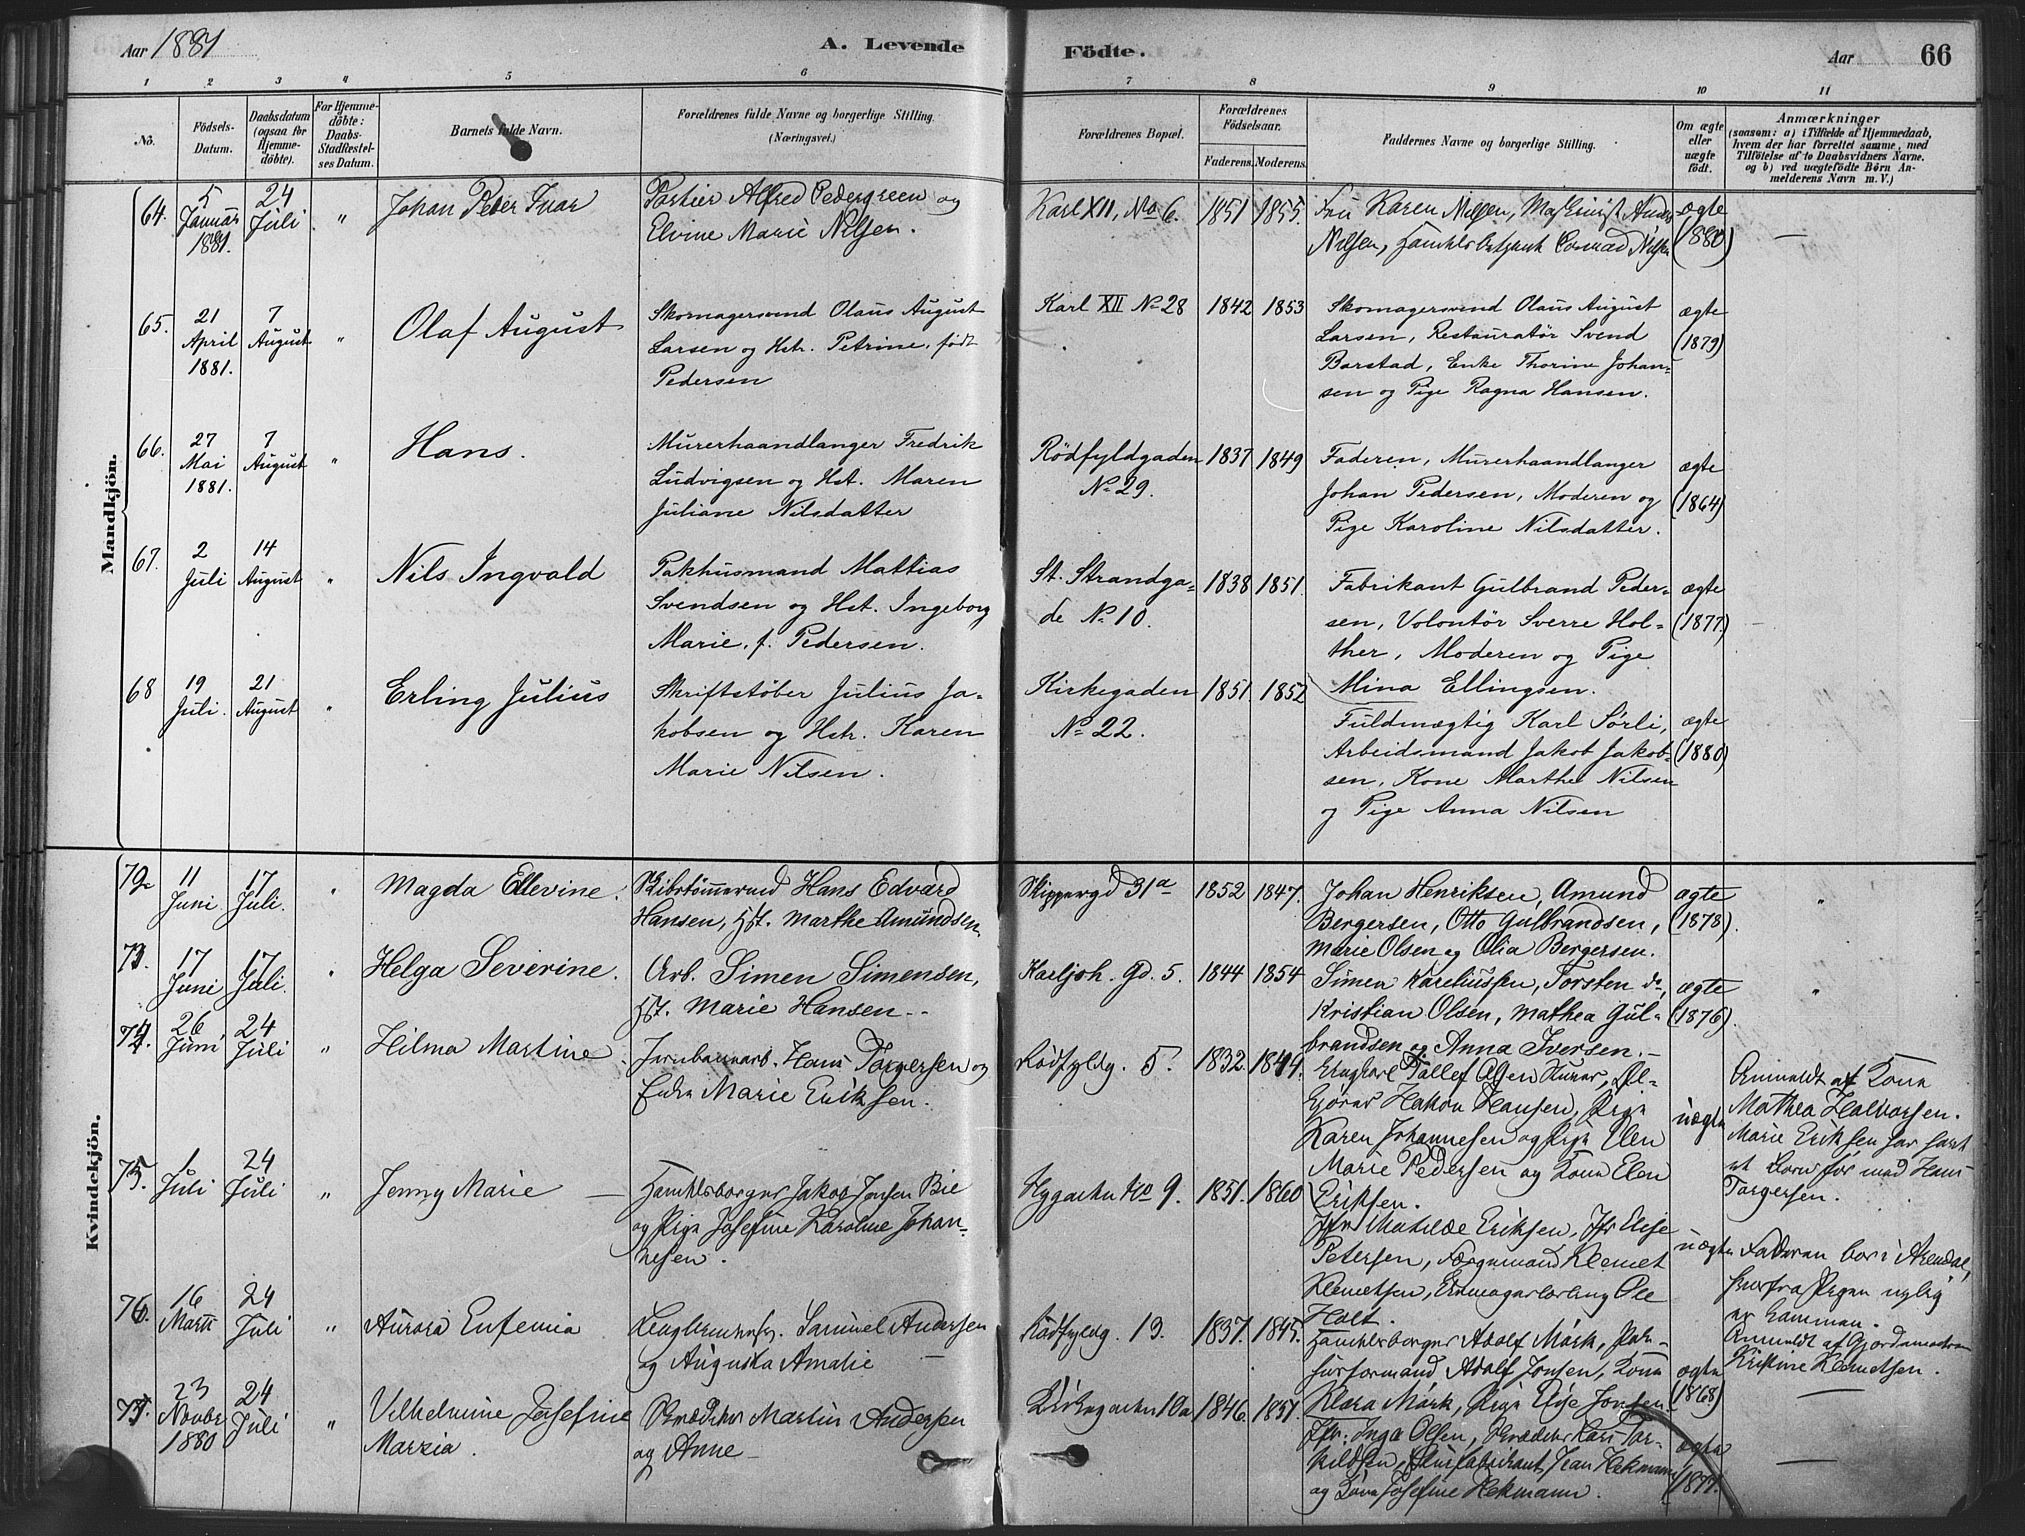 Aar 1881
A. Levende
Födte.
Aar
66
1 2 3 4 5 6 7 8 9 10 11
No.
Födsels-
Datum.
Daabsdatum
(ogsaa for
Hjemme-
döbte).
For Hjemme-
döbte:
Daabs-
Stadfæstel-
ses Datum.
Barnets fulde Navn.
Forældrenes fulde Navne og borgerlige Stilling.
(Næringsvei.)
Forældrenes Bopæl.
Forældrenes
Födselsaar.
Faderens. Moderens.
Faddernes Navne og borgerlige Stilling.
Om ægte
eller
uægte
födt.
Anmærkninger
(saasom: a) i Tilfælde af Hjemmedaab,
hvem der har forrettet samme, med
Tilföielse af to Daabsvidners Navne.
og b) ved uægtefödte Börn An-
melderens Navn m. V.)
Mandkjön.
64. 5 Januar 1881. 24 Juli " Johan Peter Ivar
Portier Alfred Pedergreen og
Elvine Marie Nilsen.
Karl XII, No 6. 1851 1855.
Fru Karen Nilsen, Maskinist
Nilsen, Conrad
ægte
(1880)
—
65. 21 April 1881. 7 August " Olaf August
Skomagersvend Olaus August
Larsen og Hstr. Petrine, født
Pedersen
Karl XII No 28 1842 1853
Skomagersvend Olaus August
Larsen, Restauratør Svend
Barstad, Enke Thorine Johan-
sen og Pige Ragna Hansen.
ægte
(1879)
66. 27 Mai 1881. 7 August " Hans.
Murerhaandlanger Fredrik
Ludvigsen og Hst. Maren
Juliane Nilsdatter
Rödfyldgaden
No 29.
1837 1849
Faderen, Murerhaandlanger
Johan Pedersen, Moderen og
Pige Karoline Nilsdatter.
ægte
(1864)
67. 2 Juli 14 August " Nils Ingvald
Pakhusmand Mattias
Svendsen og Hst. Ingeborg
Marie, f. Pedersen.
St. Strandga-
de No 10.
1838 1851.
Fabrikant Gulbrand Peder-
sen, Volontör Sverre Hol-
ther, Moderen og Pige
Mina Ellingsen.
ægte
(1877)
68 19 Juli. 21 August " Erling Julius
Skriftstøber Julius Ja-
kobsen og Hstr. Karen
Marie Nilsen.
Kirkegaden
No 22.
1851. 1852
Fuldmægtig Karl Sørli,
Arbeidsmand Jakob Jakob-
sen, Kone Marthe Nilsen
og Pige Anna Nilsen
ægte
(1880)
Kvindekjön.
72 11 Juni 17 Juli. " Magda Ellevine.
Skibstømmermd Hans Edvard
Hansen, Hst. Marthe Amundsen.
Skippergd 31a 1852 1847.
Johan Henriksen, Amund
Bergersen, Otto Gulbrandsen,
Marie Olsen og Olia Bergersen.
ægte
(1878).
"
73. 17 Juni 17 Juli. " Helga Severine.
Arb. Simen Simensen,
Hst. Marie Hansen.
Karljoh. Gd. 5. 1844 1854
Simen Kareliussen, Torsten do,
Kristian Olsen, Mathea Gul-
brandsen og Anna Iversen.
ægte
(1876).
"
74. 26 Juni 24 Juli " Hilma Martine
Jernbanearb. Hans Torgersen og
Enke Marie Eriksen.
Rödfyldg. 5. 1832 1844.
Hakon Hansen, Pige
Karen Johannesen og Pige Elen
Marie Pedersen og Kone Elen
Eriksen.
uægte
Anmeldt af Kone
Mathea Halvorsen.
Marie Eriksen har havt
et Barn før med Hans
Torgersen.
75. 1 Juli 24 Juli " Jenny Marie
Handelsborger Jakob Jonsen Bie
og Pige Josefine Karoline Johan-
nesen.
Nygaden No 9. 1851. 1860
Jfr Matilde Eriksen, Jfr Elise
Petersen, Færgemand Klemet
Klemetsen, Ole
Holt.
uægte
Faderen bor i Arendal,
hvorfra Pigen nylig
er kommen.
Anmeldt af Gjordemoderen
Kristine Klemetsen.
76. 16 Marts 24 Juli " Aurora Eufemia
Samuel Andersen
og Augusta Amalie
Rödfyldg. 19. 1837. 1845.
Handelsborger Adolf Mörk, Pak-
husformand Adolf Jonsen, Kone
Klara Mörk, Pige Elise Jonsen.
ægte
(1868)
—
77. 23 Novbr 1880 24 Juli " Vilhelmine Josefine
Marzia.
Skrædder Martin Andersen
og Anne
Kirkegaden 10a 1846. 1851.
Jfr. Inga Olsen, Skrædder Lars Tor-
kildsen, Jean Hekmann
og Kone Josefine Hekmann.
ægte
(1877.
—